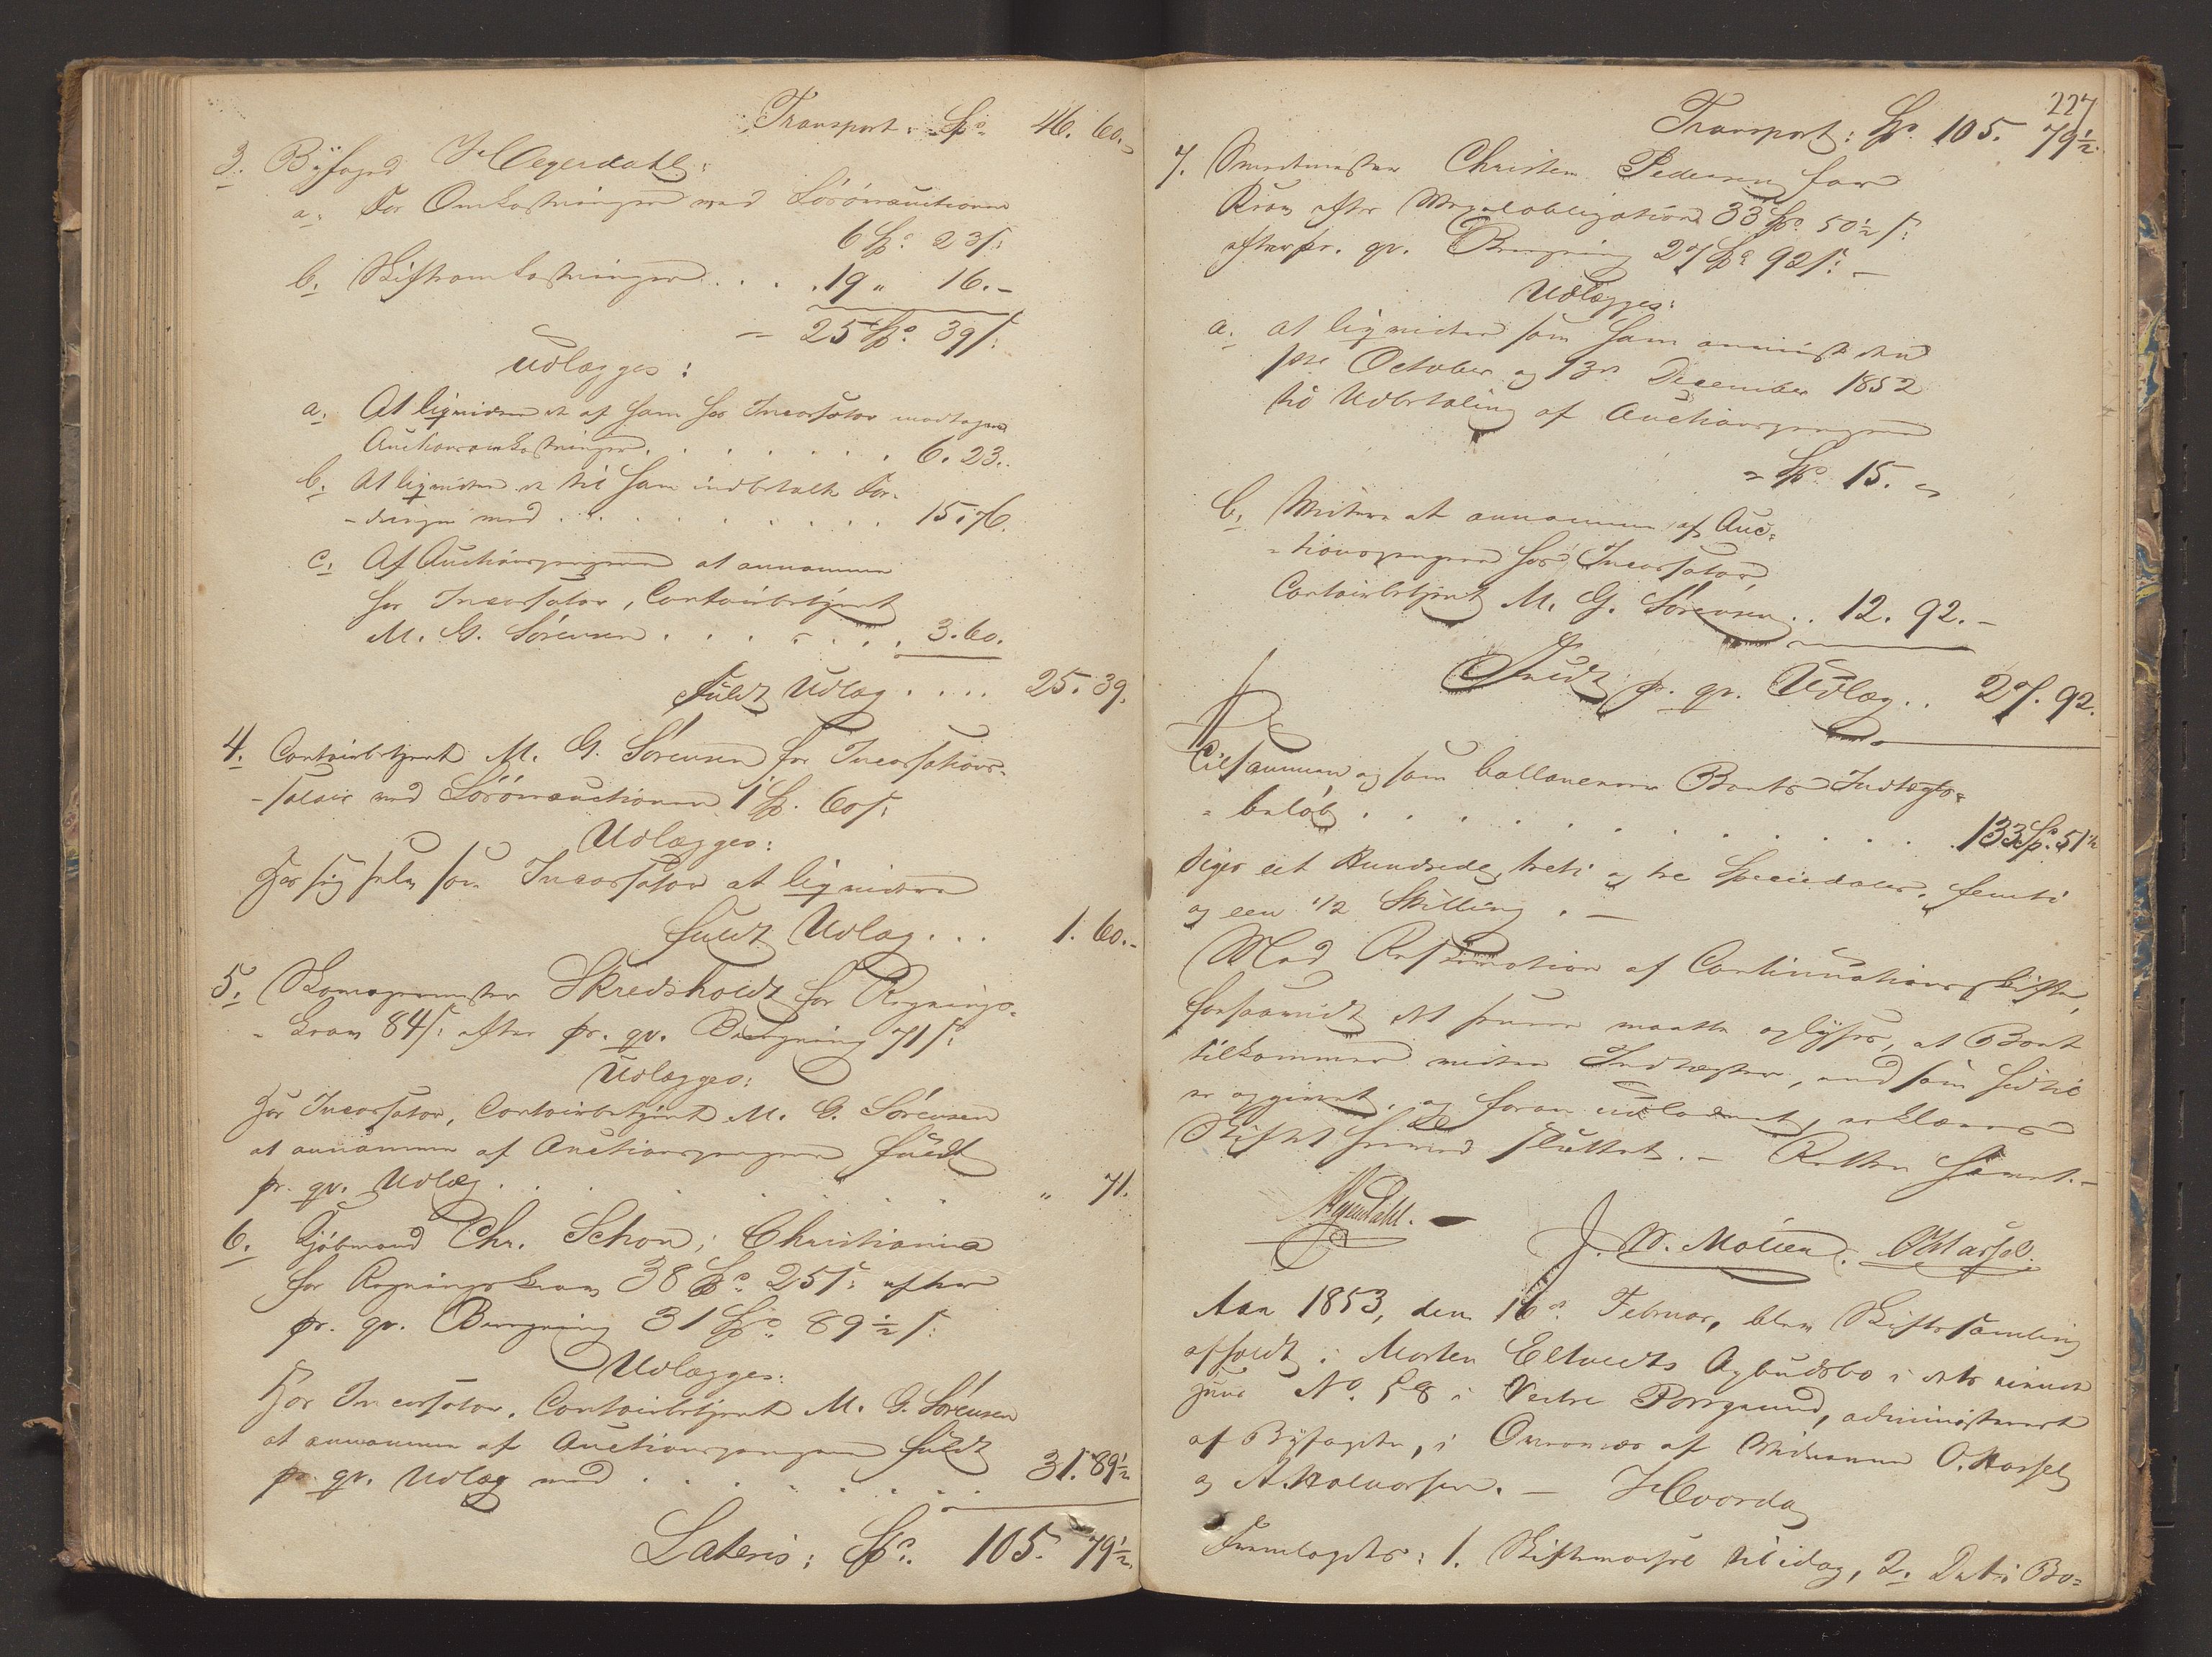 Transport: Sp. 46. 60.
3. Byfoged Hegerdahl:
a. For Omkostninger ved Løsöreauctionen
6 Sp. 23 s:
b. Skifteomkostninger . . . . 19 " 16.-
- 25 Sp. 39 s:
Udlægges:
a. At liqvidere et af ham hos Incassator modtagne
Auctionsomkostninger . . . . . . . 6. 23.
b. At liqvidere et til ham indbetalt For-
-dringer med . . . . . . . . 15. 76.
c. Af Auctionspengene at annamme
hos Incassator, Contoirbetjent
M. G. Sörensen . . . . . . . 3. 60.
Fuldt Udlæg . . . . 25. 39.
4. Contoirbetjent M. G. Sörensen for Incassations-
-salair ved Løsöreauctionen 1 Sp. 60 s:
Udlægges:
Hos sig selv som Incassator at liqvidere
fuldt Udlæg . . . 1. 60.-
5. Skomagermester Skredsholdt for Regnings-
-krav 84 s: efter pr. qv. Beregning 71 s:
Udlægges:
Hos Incassator, Contoirbetjent M. G. Sörensen
at annamme af Auctionspengene fuldt
pr. qv. Udlæg . . . . . . . . " 71.
6. Kjöbmand Chr. Schou i Christiania
for Regningskrav 38 Sp. 25 s: efter
pr. qv. Beregning 31 Sp. 89½ s:
Udlægges:
Hos Incassator, Contoirbetjent M. G. Sörensen
at annamme af Auctionspengene fuldt
pr. qv. Udlæg med . . . . . . . 31. 89½
Lateris: Sp. 105. 79½.
227
Transport: Sp. 105. 79½.
7. Smedmester Christen Pedersen for
Krav efter Vexelobligation 33 Sp. 50½ s:
efter pr. qv. Beregning 27 Sp. 92 s: -
Udlægges:
a. at liqvidere som ham anviist den
1ste October og 13de December 1852
til Udbetaling af Auctionspengene
Sp. 15. "
b. Videre at annamme af Auc-
-tionspengene hos Incassator,
Contoirbetjent M. G. Sörensen . . 12. 92. -
Fuldt pr. qv. Udlæg . . 27. 92.
Tilsammen, og som ballancerer Boets Indtægts-
-belöb . . . . . . . . . . . . 133 Sp. 51½
siger eet Hundrede, treti og tre Speciedaler, femti
og een 1/2 Skilling. -
Med Reservation af Continuationsskifte,
forsaavidt det senere maatte oplyses, at Boet
tilkommer videre Indtægter, end som hidtil
er opgivet, og foran udlodnet, erklæres
Skiftet hermed sluttet. - Retten hævet. -
Hegerdahl. - J. W. Möller. O. Hassel.
Aar 1853, den 16de Februar, blev Skiftesamling
afholdt i Morten Eltvedts Opbudsbo i dets iboende
Huus No. 58 i Vestre Porsgrund, administreret
af Byfogden, i Overvær af Vidnerne O. Hassel
og A. Halvorsen. - Hvorda
Fremlagdes: 1. Skiftevarsel til idag, 2. Det i Bo-